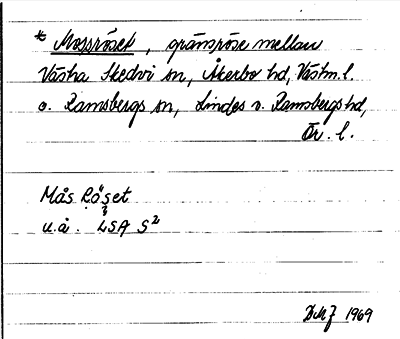 * Mossröset, gränsröse mellan
Västra Skedvi sn, Åkerbo hd, Västm. l.
o. Ramsbergs sn, Lindes o. Ramsbergs hd,
Ör. l.
Mås Röset
u.å. LSA S2
1969